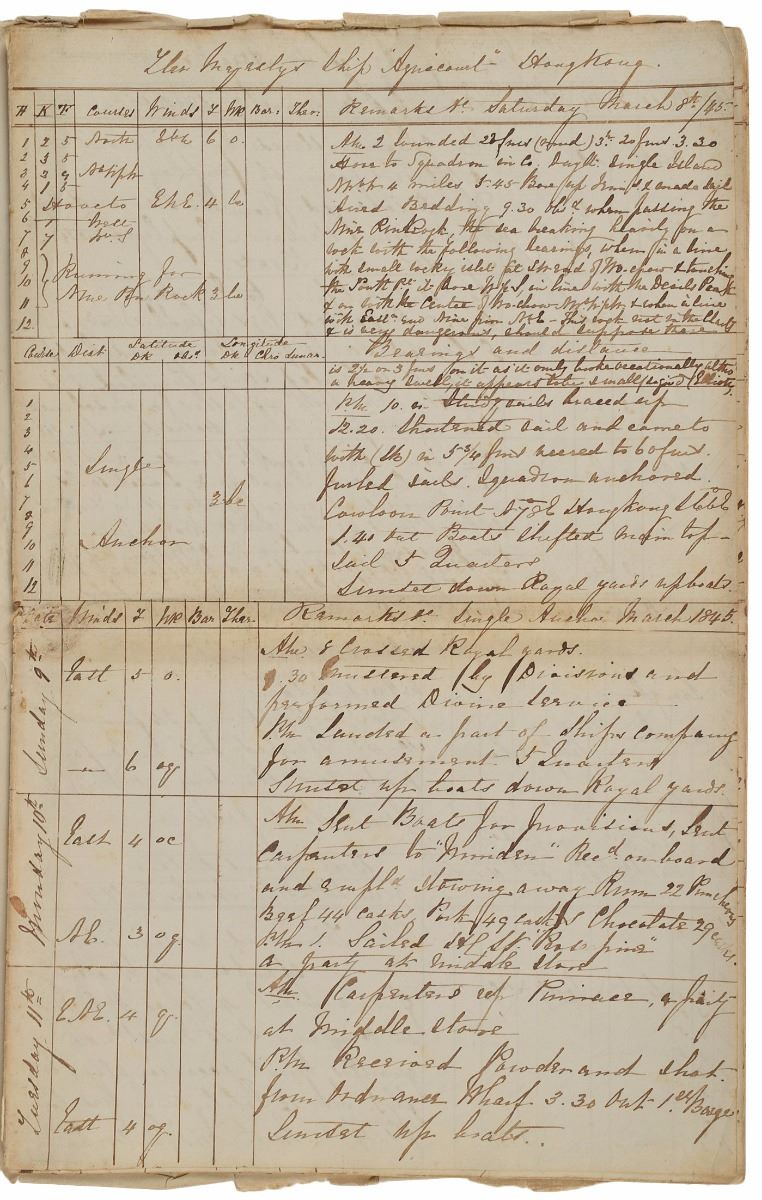 Her Majestys Ship "Agincourt" Hongkong.
H K F Courses Winds F Wr Bar: Ther: Remarks &c. Saturday March 8th /45.
1 2 5 North EbE 6 o. Am. 2 sounded 28 fms (mud) 3h. 20 fms 3.30
2 3 5 Hove to Squadron in Co. Single Island
3 2 4 miles 5.45 Bore up
4 1 5
5 Hove to EbE. 4 bc Aired Bedding 9.30 Obsd. when passing the
6 1 West Nine Pin Rock, the sea breaking heavily on a
7 7 rock with the following bearings, when in a line
8 with small rocky islet
9 Running for the South Pt. it bore in line with the Devils Peak
10 Nine Pin Rock 3 bc & on with the Centre of & when in line
11 with East end Nine pin This rock not in the Charts
12 & is very dangerous, should suppose there
Course Dist Latitude Longitude Bearings and distance
DR Obsd. DR Chro Lunar.
is 2½ or 3 fms on it as it only broke occasionally altho
a heavy swell, it appears to be small (signed) (Elliott).
1 Pm. 10. in Studg sails braced up
2 12.20. Shortened sail and came to
3 with (Sb) in 5¾ fms veered to 60 fms.
4 furled sails. Squadron anchored.
5 Single
6 Cowloon Point Hongkong
7 3 bc
8 1.40 Out Boats shifted Main top-
9 sail 5 Quarters
10 Anchor
11 Sunset down Royal yards up boats.
12
Date Winds F Wr Bar Ther. Remarks &c. Single Anchor March 1845.
Sunday 9th
Am 8 Crossed Royal yards.
East 5 o. 9.30 Mustered by Divisions and
performed Divine Service
Pm Landed a part of Ships company
" 6 og for amusement 5 Quarters
Sunset up boats down Royal yards.
Monday 10th
Am Sent Boats for provisions, Sent
East 4 oc Carpenters to "Minden" Recd. on board
and empld. stowing away Rum 22 Puncheons
Beef 44 casks, Pork 49 casks Chocolate 29 cases.
NE. 3 og. Pm 1. Sailed "Proserpine"
a party at Middle Store
Tuesday 11th
Am Carpenters rep Pinnace, a party
ENE. 4 g. at Middle Store
Pm Received Powder and shot
from Ordnance Wharf 3.30 Out 1st Barge
East 4 og. Sunset up boats.